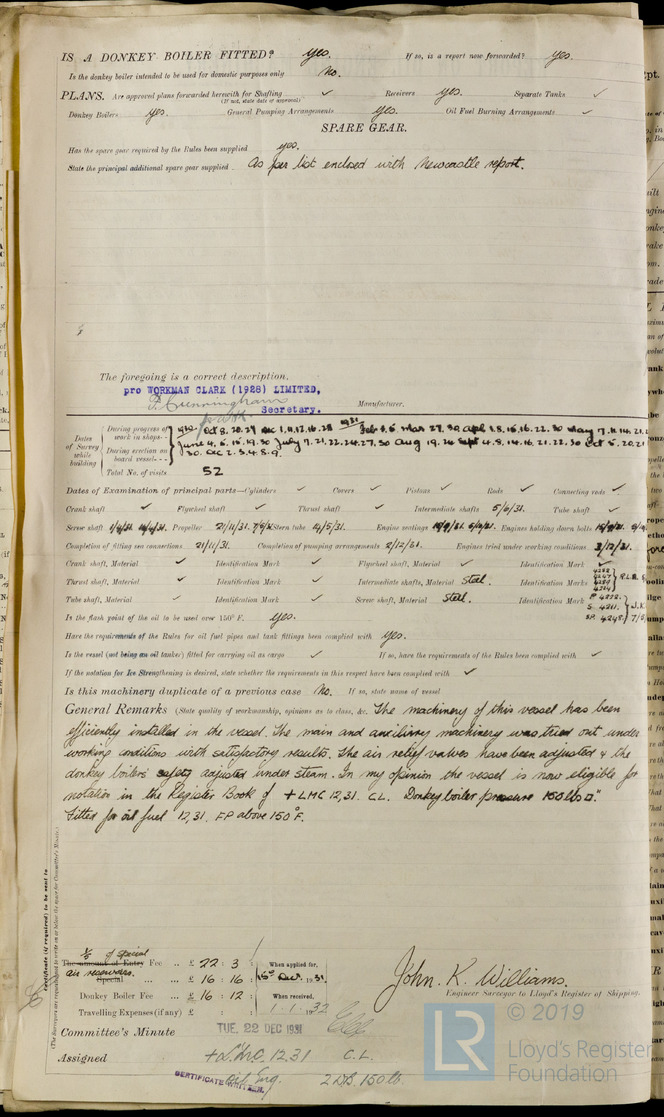 IS A DONKEY BOILER FITTED? Yes. If so, is a report now forwarded? Yes.
Is the donkey boiler intended to be used for domestic purposes only No.
PLANS. Are approved plans forwarded herewith for Shafting ✓ Receivers Yes. Separate Tanks ✓
(If not, state date of approval)
Donkey Boilers Yes. General Pumping Arrangements Yes. Oil Fuel Burning Arrangements ✓
SPARE GEAR.
Has the spare gear required by the Rules been supplied Yes.
State the principal additional spare gear supplied As per list enclosed with Newcastle report.
The foregoing is a correct description,
pro WORKMAN CLARK (1928) LIMITED,
Cunningham
Secretary. Manufacturer.
Dates of Survey while building
During progress of work in shops-- 1930 Oct 8. 20. 29 Dec 1. 11. 12. 16. 28 1931 Feb 3. 6 Mar 27. 30 Apl 1. 8. 15. 16. 22. 30 May 7. 11. 14. 21.
During erection on board vessel--- June 4. 6. 15. 19. 30 July 7. 21. 22. 24. 27. 30 Aug 19. 24 Sept 4. 8. 14. 16. 21. 22. 30 Oct 5. 20. 21
30. Dec 2. 3. 4. 8. 9.
Total No. of visits 52
Dates of Examination of principal parts—Cylinders ✓ Covers ✓ Pistons ✓ Rods ✓ Connecting rods ✓
Crank shaft ✓ Flywheel shaft ✓ Thrust shaft ✓ Intermediate shafts 5/6/31. Tube shaft ✓
Screw shaft Propeller 21/11/31. Stern tube 14/5/31. Engine seatings Engines holding down bolts
Completion of fitting sea connections 21/11/31. Completion of pumping arrangements 2/12/31. Engines tried under working conditions 3/12/31.
Crank shaft, Material ✓ Identification Mark ✓ Flywheel shaft, Material ✓ Identification Mark ✓
Thrust shaft, Material ✓ Identification Mark ✓ Intermediate shafts, Material Steel. Identification Marks R.L.B.
Tube shaft, Material ✓ Identification Mark ✓ Screw shaft, Material Steel. Identification Mark
Is the flash point of the oil to be used over 150° F. Yes.
Have the requirements of the Rules for oil fuel pipes and tank fittings been complied with Yes.
Is the vessel (not being an oil tanker) fitted for carrying oil as cargo ✓ If so, have the requirements of the Rules been complied with ✓
If the notation for Ice Strengthening is desired, state whether the requirements in this respect have been complied with ✓
Is this machinery duplicate of a previous case No. If so, state name of vessel
General Remarks (State quality of workmanship, opinions as to class, &c. The machinery of this vessel has been
efficiently installed in the vessel. The main and auxiliary machinery was tried out under
working conditions with satisfactory results. The air relief valves have been adjusted & the
donkey boilers' safety adjusted under steam. In my opinion the vessel is now eligible for
notation in the Register Book of + LMC 12,31. C.L. Donkey boiler pressure 150 lbs □".
Fitted for oil fuel 12,31. F.P. above 150°F.
Certificate (if required) to be sent to
(The Surveyors are requested not to write on or below the space for Committee's Minute.)
of special
The amount of Entry Fee .. £ 22 : 3 : When applied for,
air receivers.
Special ... £ 16 : 16 : 15th Dec. 1931.
Donkey Boiler Fee ... £ 16 : 12 : When received,
Travelling Expenses (if any) £ : : 1.1.1932
John. K. Williams.
Engineer Surveyor to Lloyd's Register of Shipping.
Committee's Minute TUE. 22 DEC 1931
Assigned + L.M.C. 12.31 C.L.
CERTIFICATE WRITTEN. Oil Eng. 2 D.B. 150 lb.
© 2019
LR
Lloyd's Register
Foundation